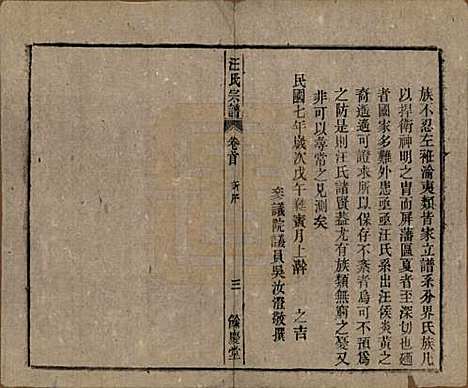 族不忍左袵淪夷類昔家立譜系分界氏族凡
以捍衛神明之胄而屏藩區夏者至深切也廼
者國家多難外患亟亟汪氏系出汪侯炎黃之
裔遥遥可證求所以保存不紊者烏可不預為
之防是則汪氏諸賢蓋尤有族類無窮之憂又
非可以尋常之見測矣
民國七年歲次戊午蕤賓月上澣 之吉
衆議院議員吳汝澄敬撰
汪氏宗譜
卷首
新序
三
餘慶堂